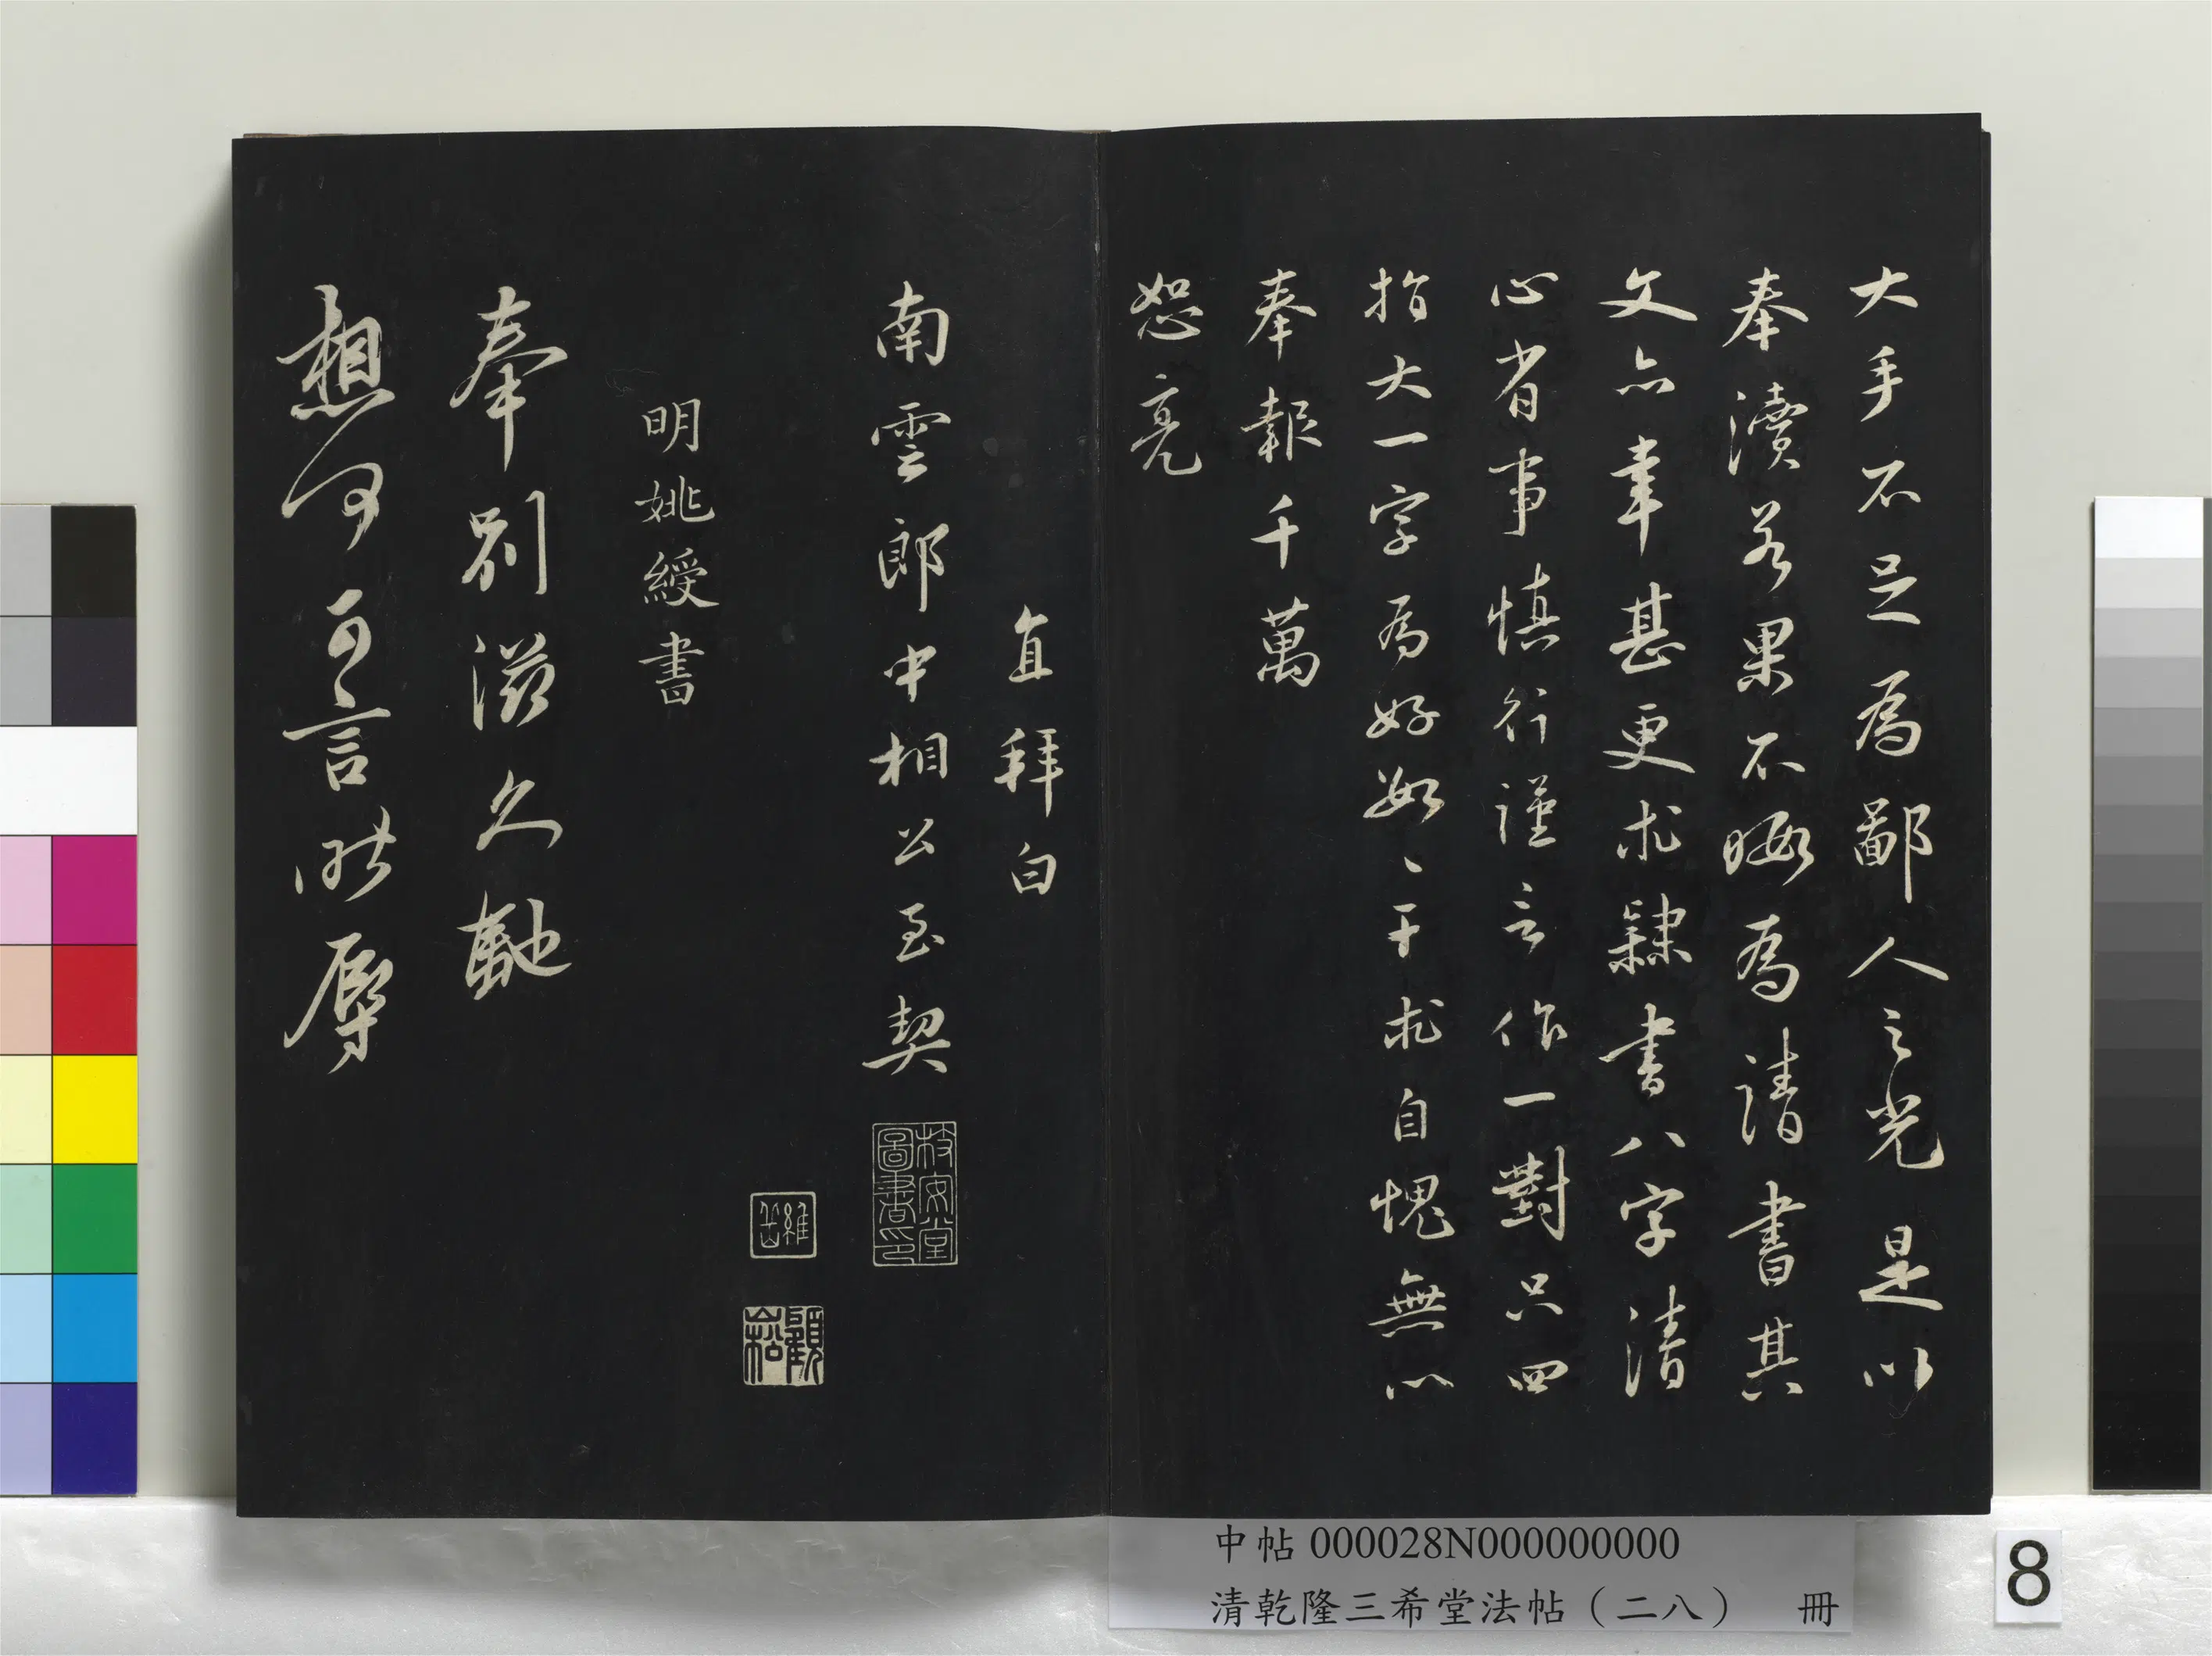 大手不足為鄙人之光是以
奉瀆若果不暇為請書其
文亦幸甚更求隸書八字清
心省事慎行謹言作一對只四
指大一字為好數〻干求自愧無以
奉報千萬
恕亮
直拜白
南雲郎中相公至契
明姚綬書
奉別滋久馳
想何可言昨辱
中帖000028N000000000
清乾隆三希堂法帖（二八） 冊
8